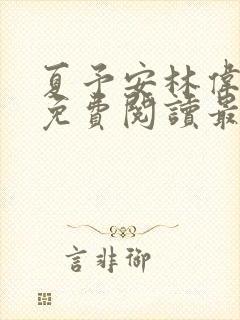 夏予安林偉
免費閱讀最
言非御